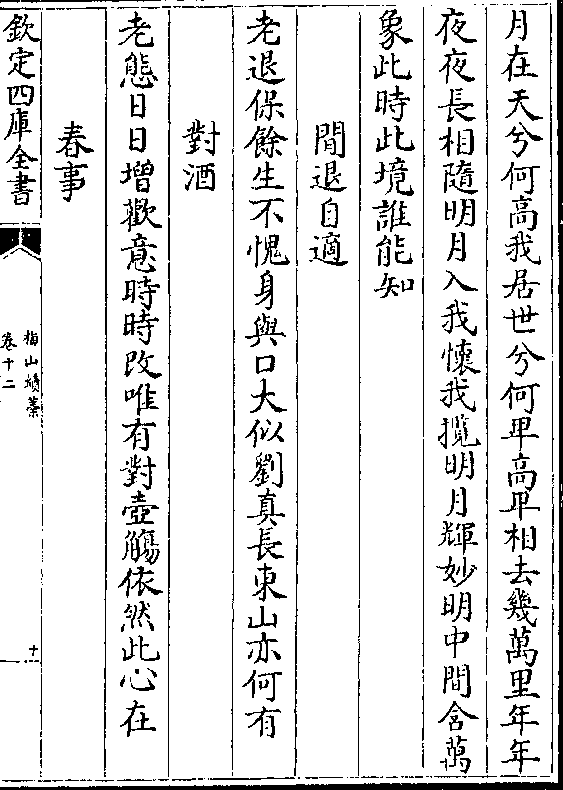 月在天兮何高我居世兮何卑高卑相去幾萬里年年
夜夜長相隨明月入我懷我攬明月輝妙明中間含萬
象此時此境誰能知
閒退自適
老退保餘生不愧身與口大似劉真長東山亦何有
對酒
老態日日增歡意時時改唯有對壺觴依然此心在
春事
欽定四庫全書
梅山續藁
卷十二
十